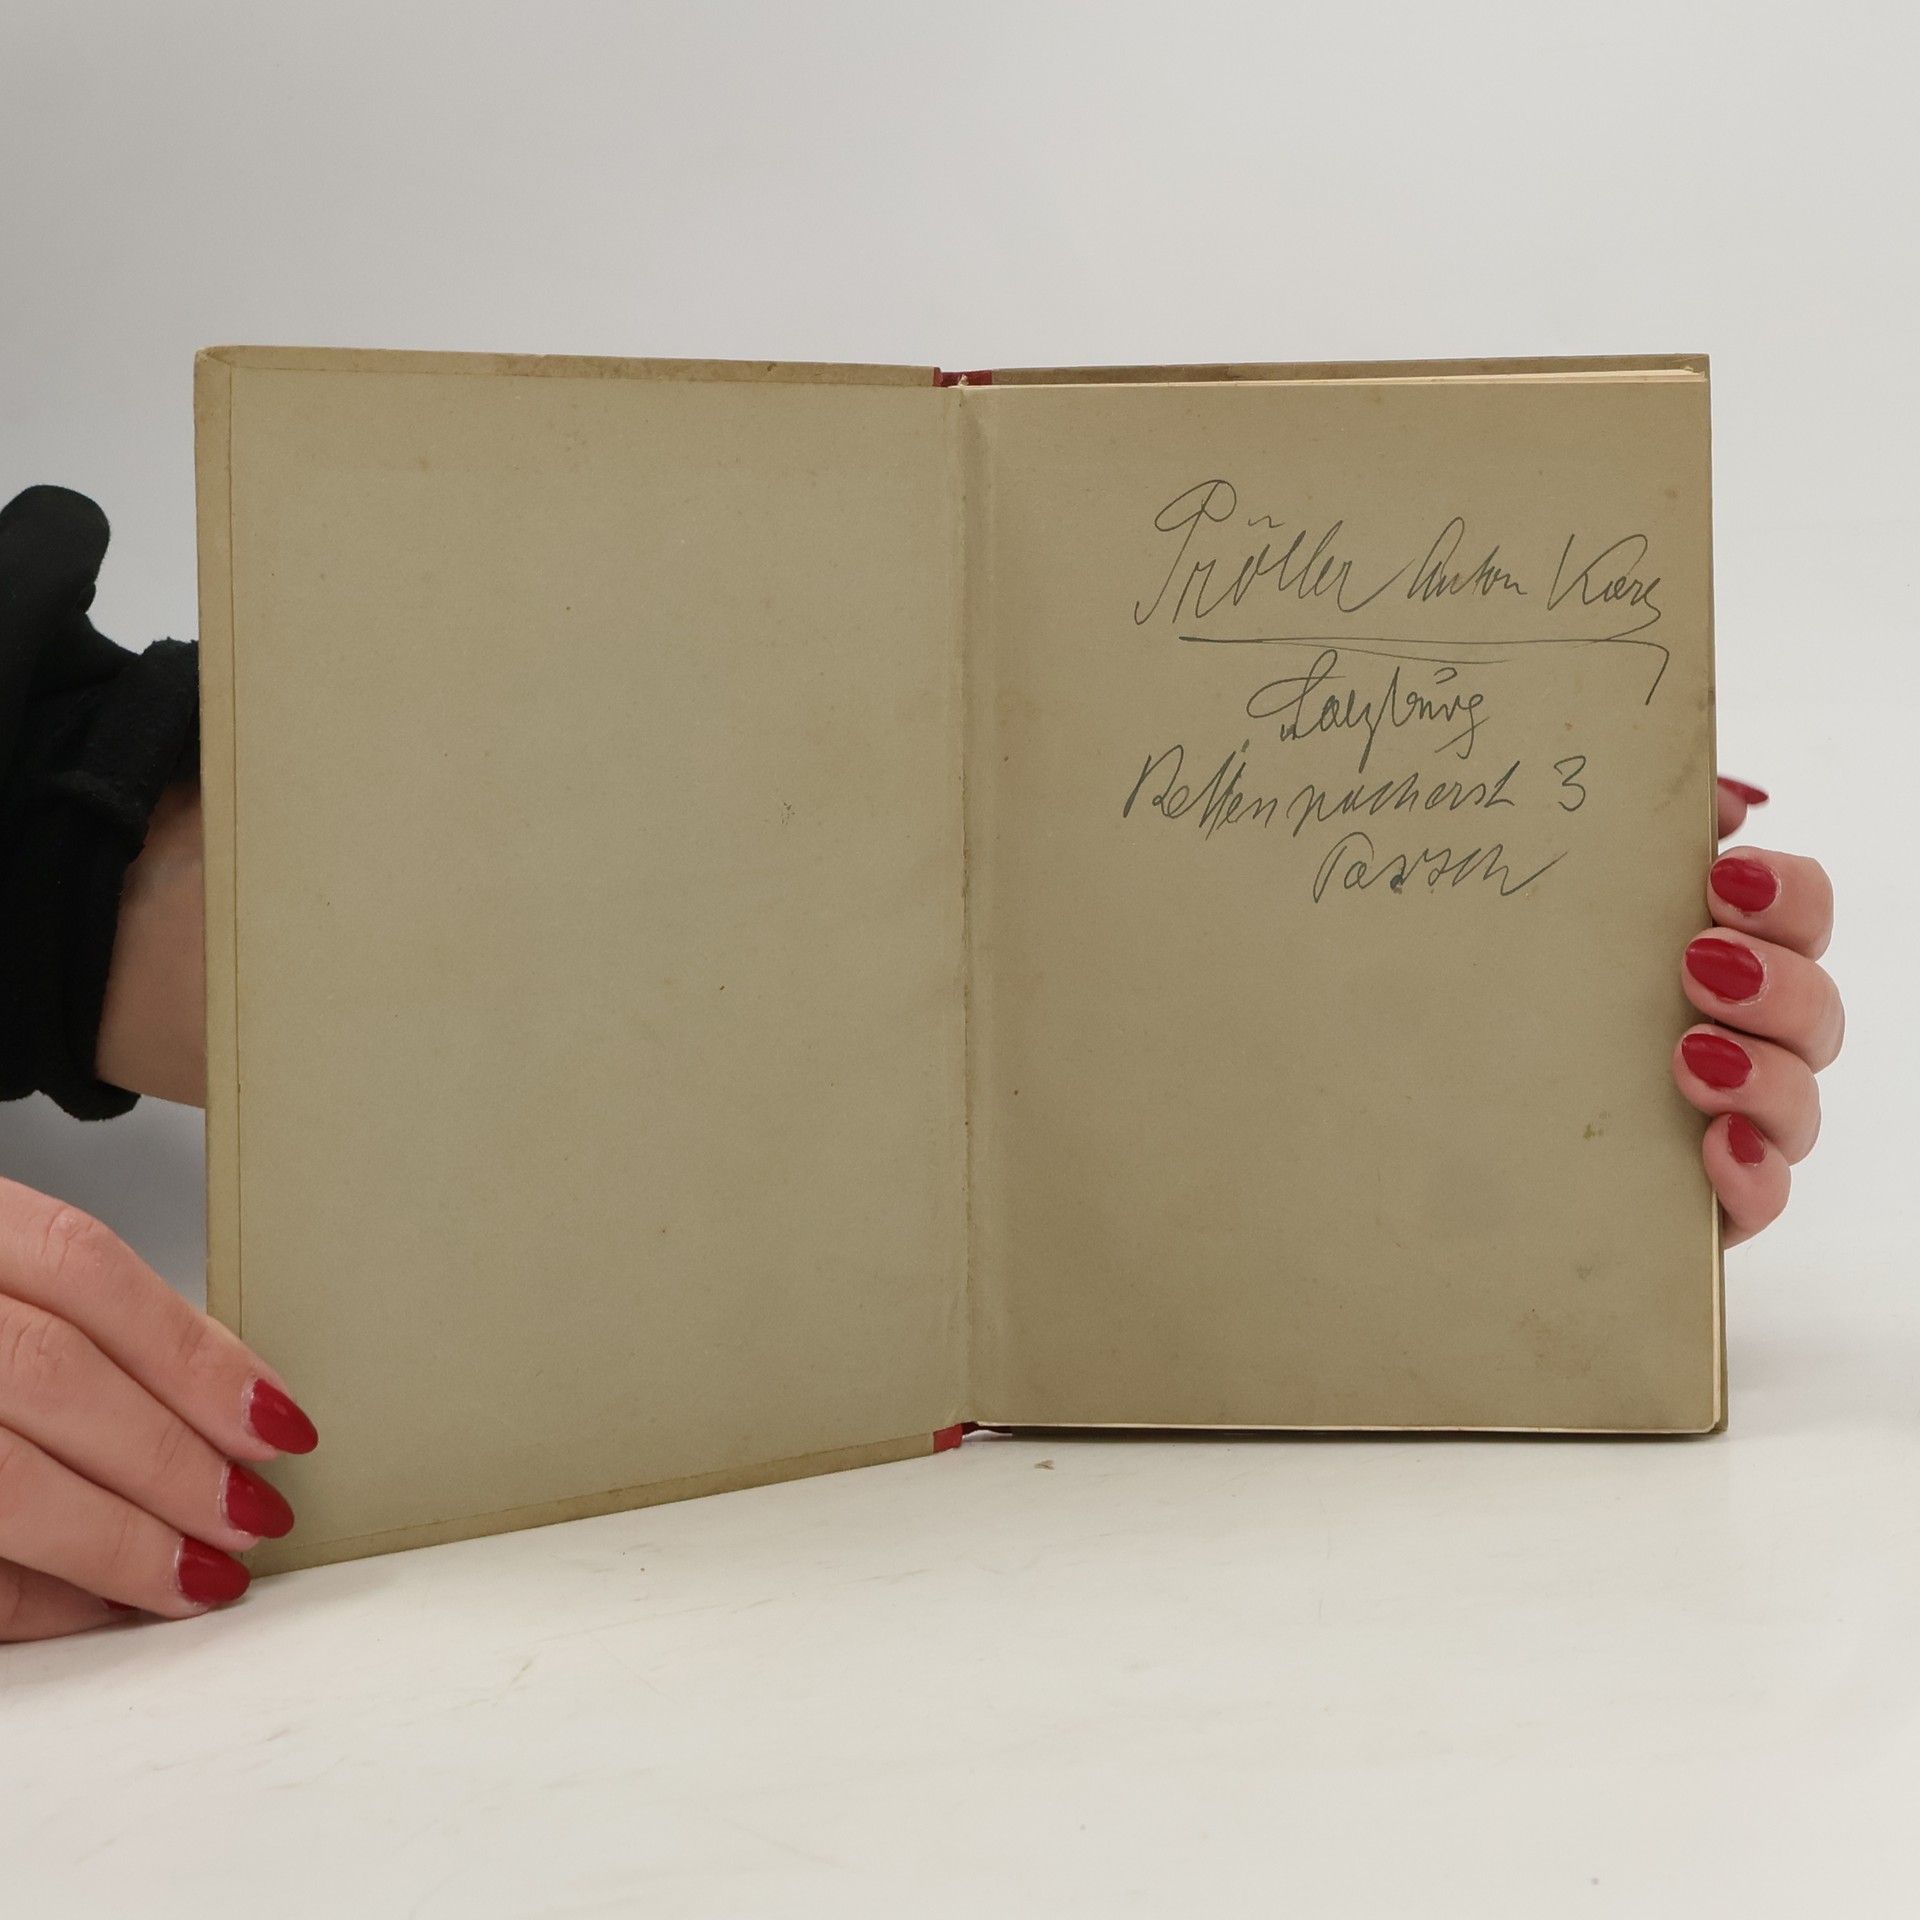 Pröller Anton Karl
Salzburg
Rettenpacherst 3
Parsch